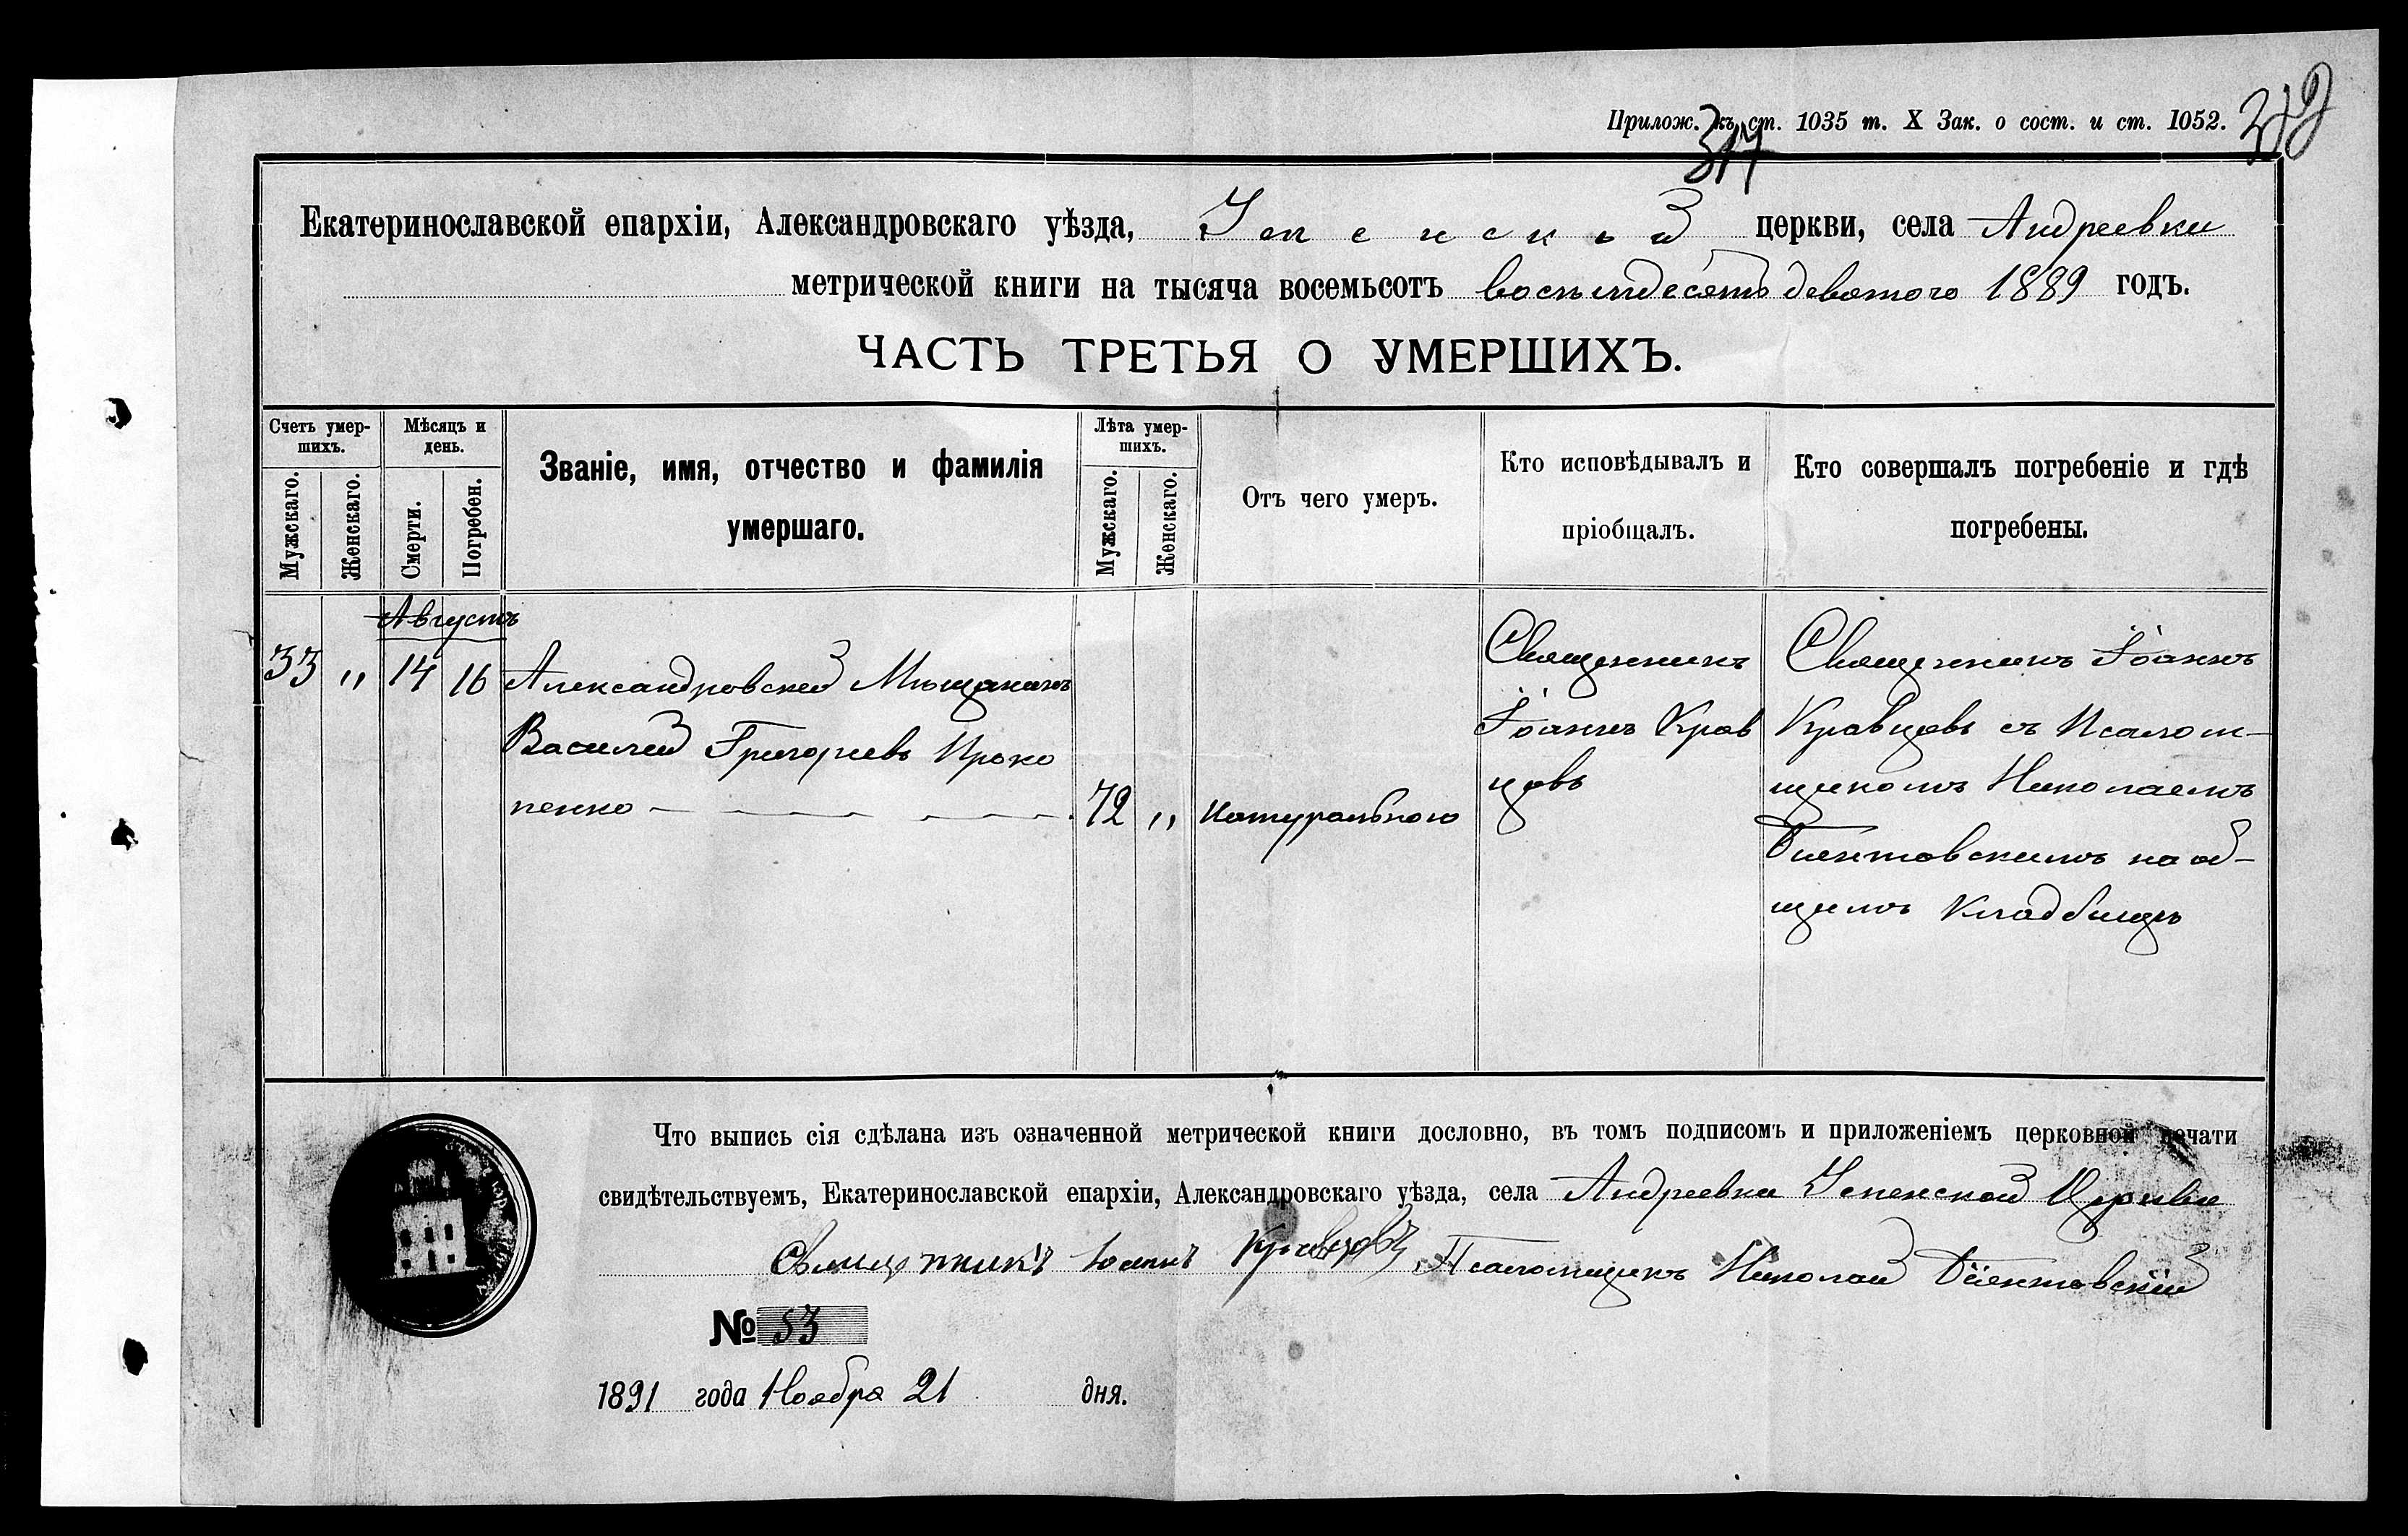 Прилож. къ ст. 1035 т. X Зак. о сост. и ст. 1052.
317
Екатеринославской епархіи, Александровскаго уѣзда, Успенской церкви, села Андреевки
метрической книги на тысяча восемьсотъ восемьдесятъ девятого 1889 годъ.
ЧАСТЬ ТРЕТЬЯ О УМЕРШИХЪ.
Счетъ умер-
шихъ.
Мужскаго.
Женскаго.
Мѣсяцъ и
день.
Смерти.
Погребен.
Званіе, имя, отчество и фамилія
умершаго.
Лѣта умер-
шихъ.
Мужскаго.
Женскаго.
Отъ чего умеръ.
Кто исповѣдывалъ и
пріобщалъ.
Кто совершалъ погребеніе и гдѣ
погребены.
Августъ
33 " 14 16
Александровскей Мѣщанинъ
Василей Григорiевъ Проко
пенко
72 "
натуральною
Священникъ
Іоаннъ Крав
цовъ
Священникъ Іоаннъ
Кравцовъ съ Псалом-
щикомъ Николаемъ
на об-
щемъ Кладбищѣ
Что выпись сія сдѣлана изъ означенной метрической книги дословно, въ томъ подписомъ и приложеніемъ церковной печати
свидѣтельствуемъ, Екатеринославской епархіи, Александровскаго уѣзда, села Андреевки Успенской Церкви
Священникъ Іоаннъ Кравцовъ Псаломщикъ Николай
№ 53
1891 года Ноября 21 дня.